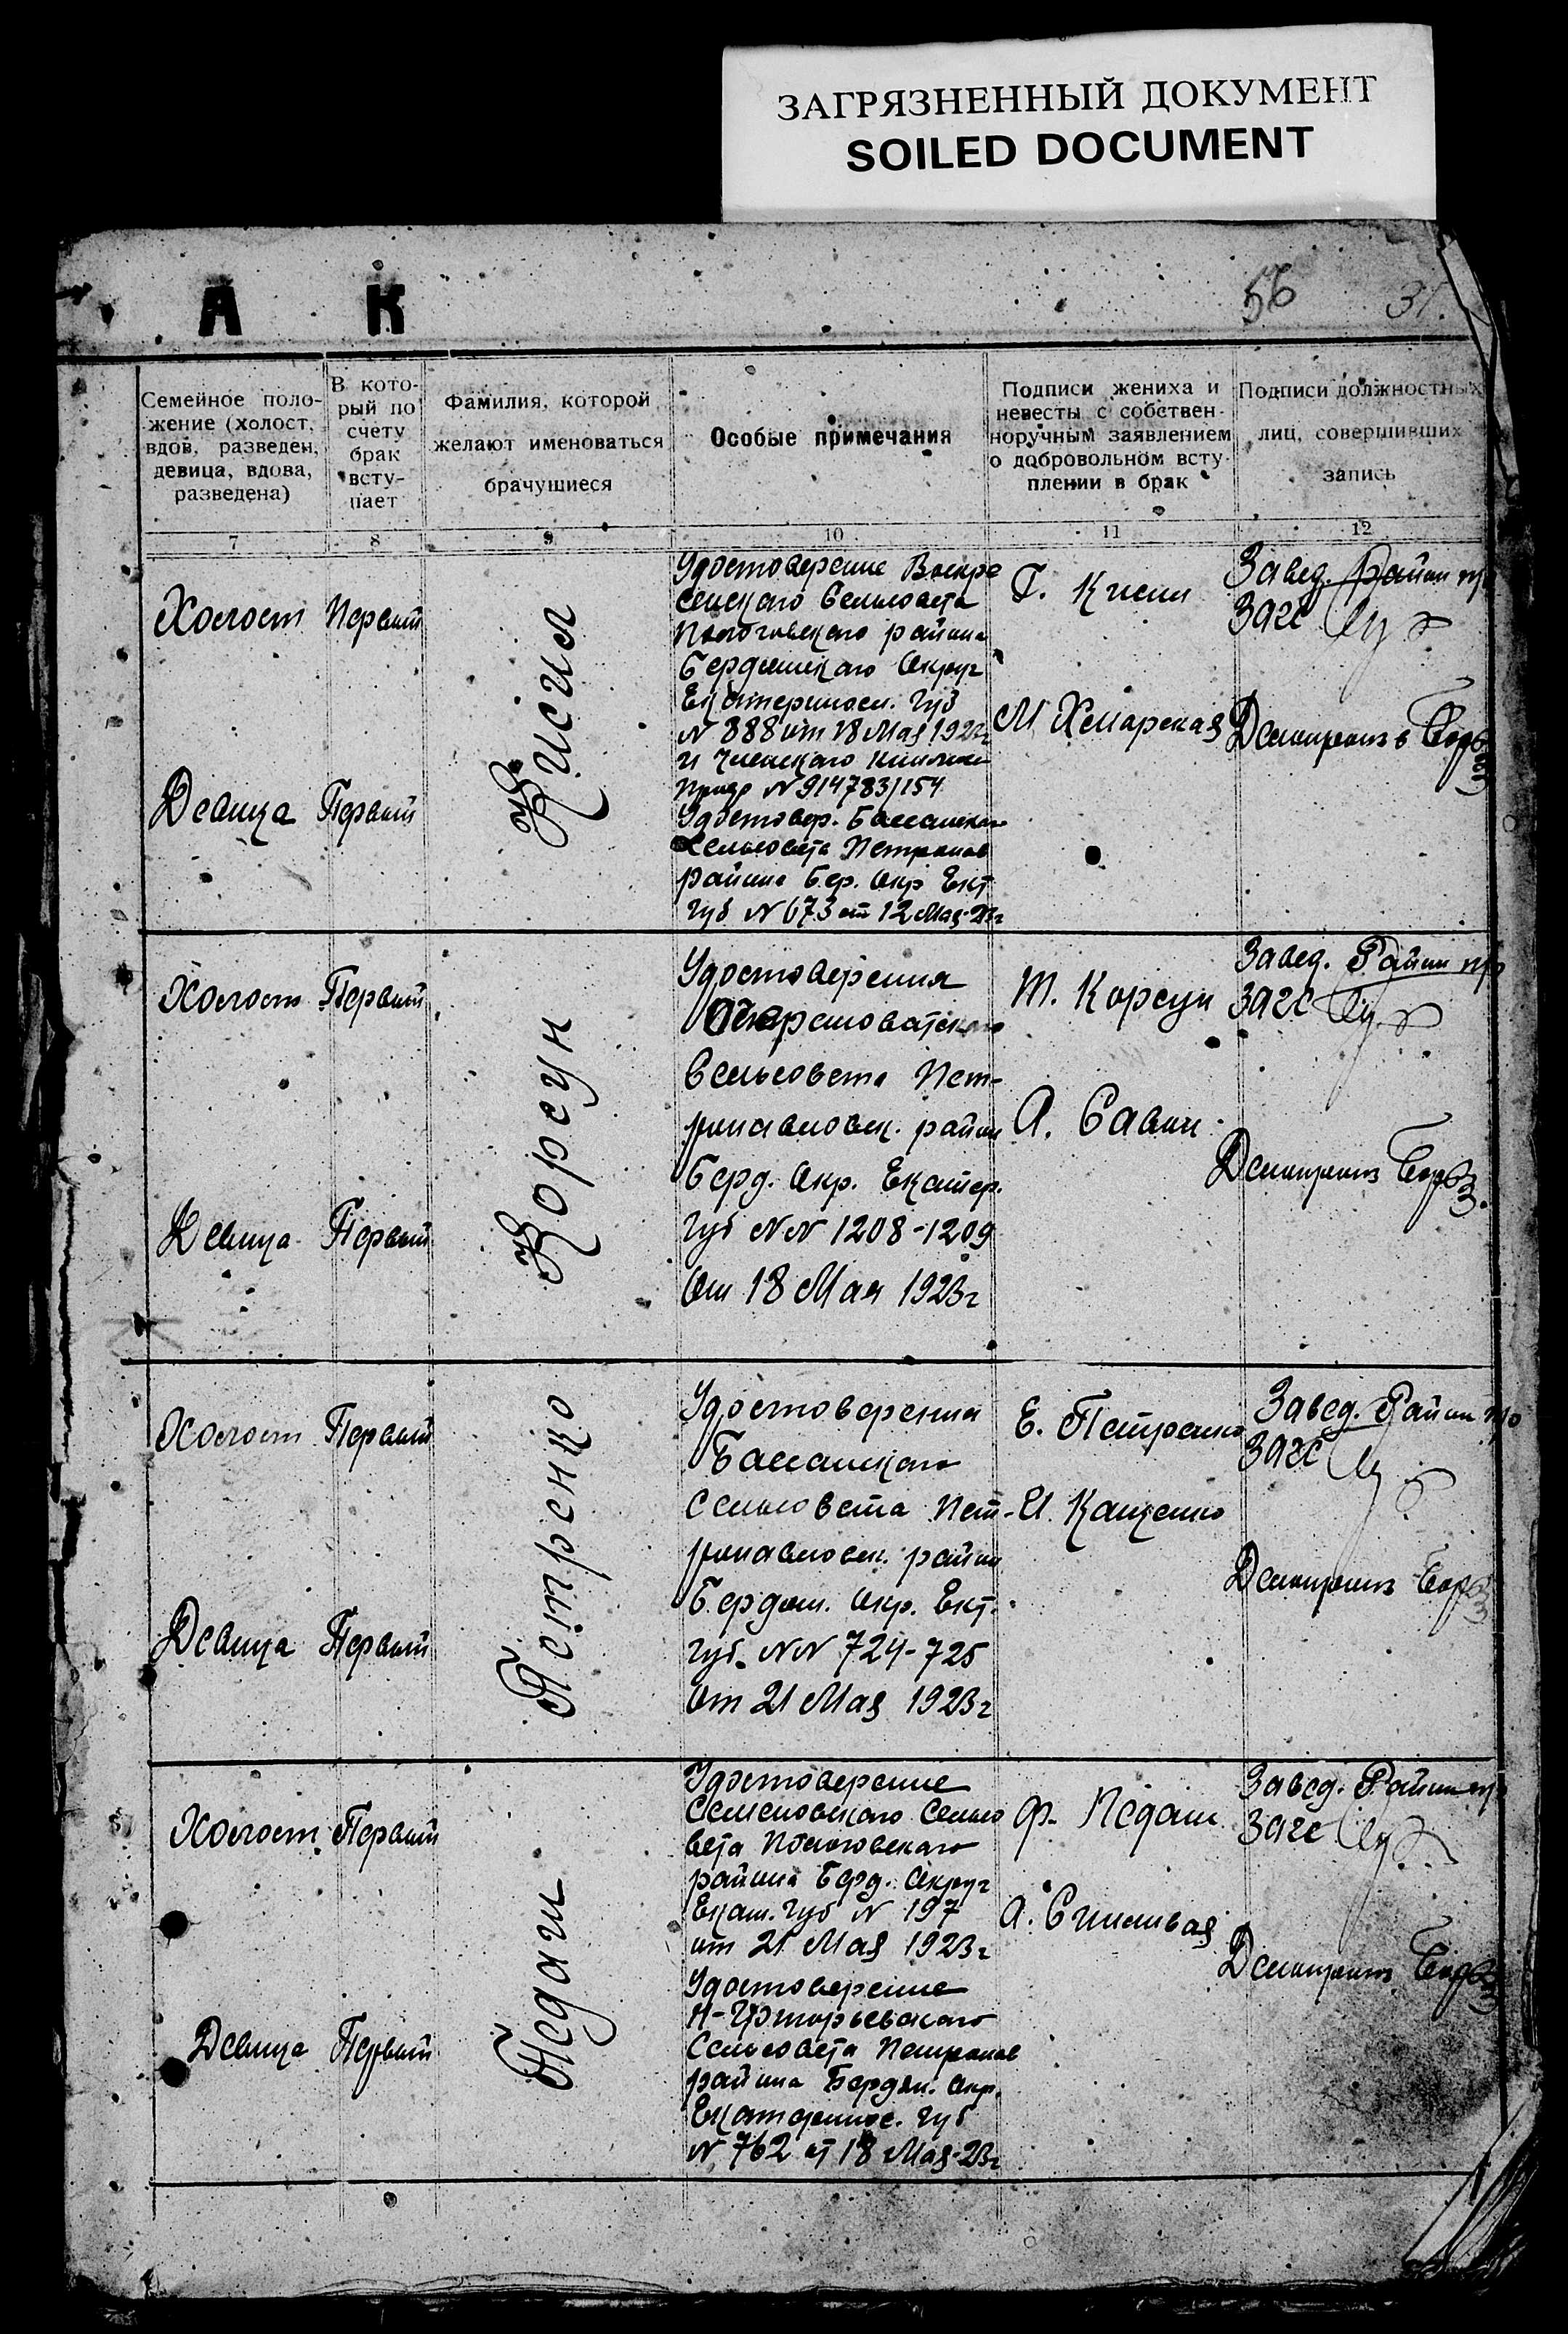 ЗАГРЯЗНЕННЫЙ ДОКУМЕНТ
SOILED DOCUMENT
А К
56
31.
Семейное поло-
жение (холост,
вдов, разведен,
девица, вдова,
разведена)
В кото-
рый по
счету
брак
всту-
пает
Фамилия, которой
желают именоваться
брачущиеся
Особые примечания
Подписи жениха и
невесты с собствен-
норучным заявлением
о добровольном всту-
плении в брак
Подписи должностных
лиц, совершивших
запись
7
8
9
10
11
12
Холост
Первый
Девица
Первый
Кисил
Удостоверение Воскре
сенского Сельсовета
Пологовского района
Бердянского Округ
Екатериносл. Губ
N 888 от 18 Мая 1923г
и
N 914783/154
Удостовер. Басанского
Сельсовета Петропав
района Бер. Окр Ект
Губ N 673 от 12 Мая-23г
Г. Кисил
М Хмарская
Завед. Район
Загс
Холост
Первый
Девица
Первый
Корсун
Удостоверения
Сельсовета Пет-
ропавловск. район
Берд. Окр. Екатер.
Губ NN 1208-1209
От 18 Мая 1923г
Т. Корсун
А. Савин
Завед. Район
Загс
Холост
Первый
Девица
Первый
Петренко
Удостоверения
Басанского
Сельсовета Пет-
ропавловск. район
Бердян. Окр. Ект.
Губ. NN 724-725
От 21 Мая 1923г
Е. Петренко
И. Кащенко
Завед. Район
Загс
Холост
Первый
Девица
Первый
Педаш
Удостоверение
Семеновского Сельсо
вета Пологовского
района Берд. Округ
Екат. Губ N 197
от 21 Мая 1923г
Удостоверение
Сельсовета Петропав
района Бердян. Окр.
Екатеринос. Губ
N 762 от 18 Мая-23г
Ф. Педаш
А. Синивая
Завед. Район
Загс